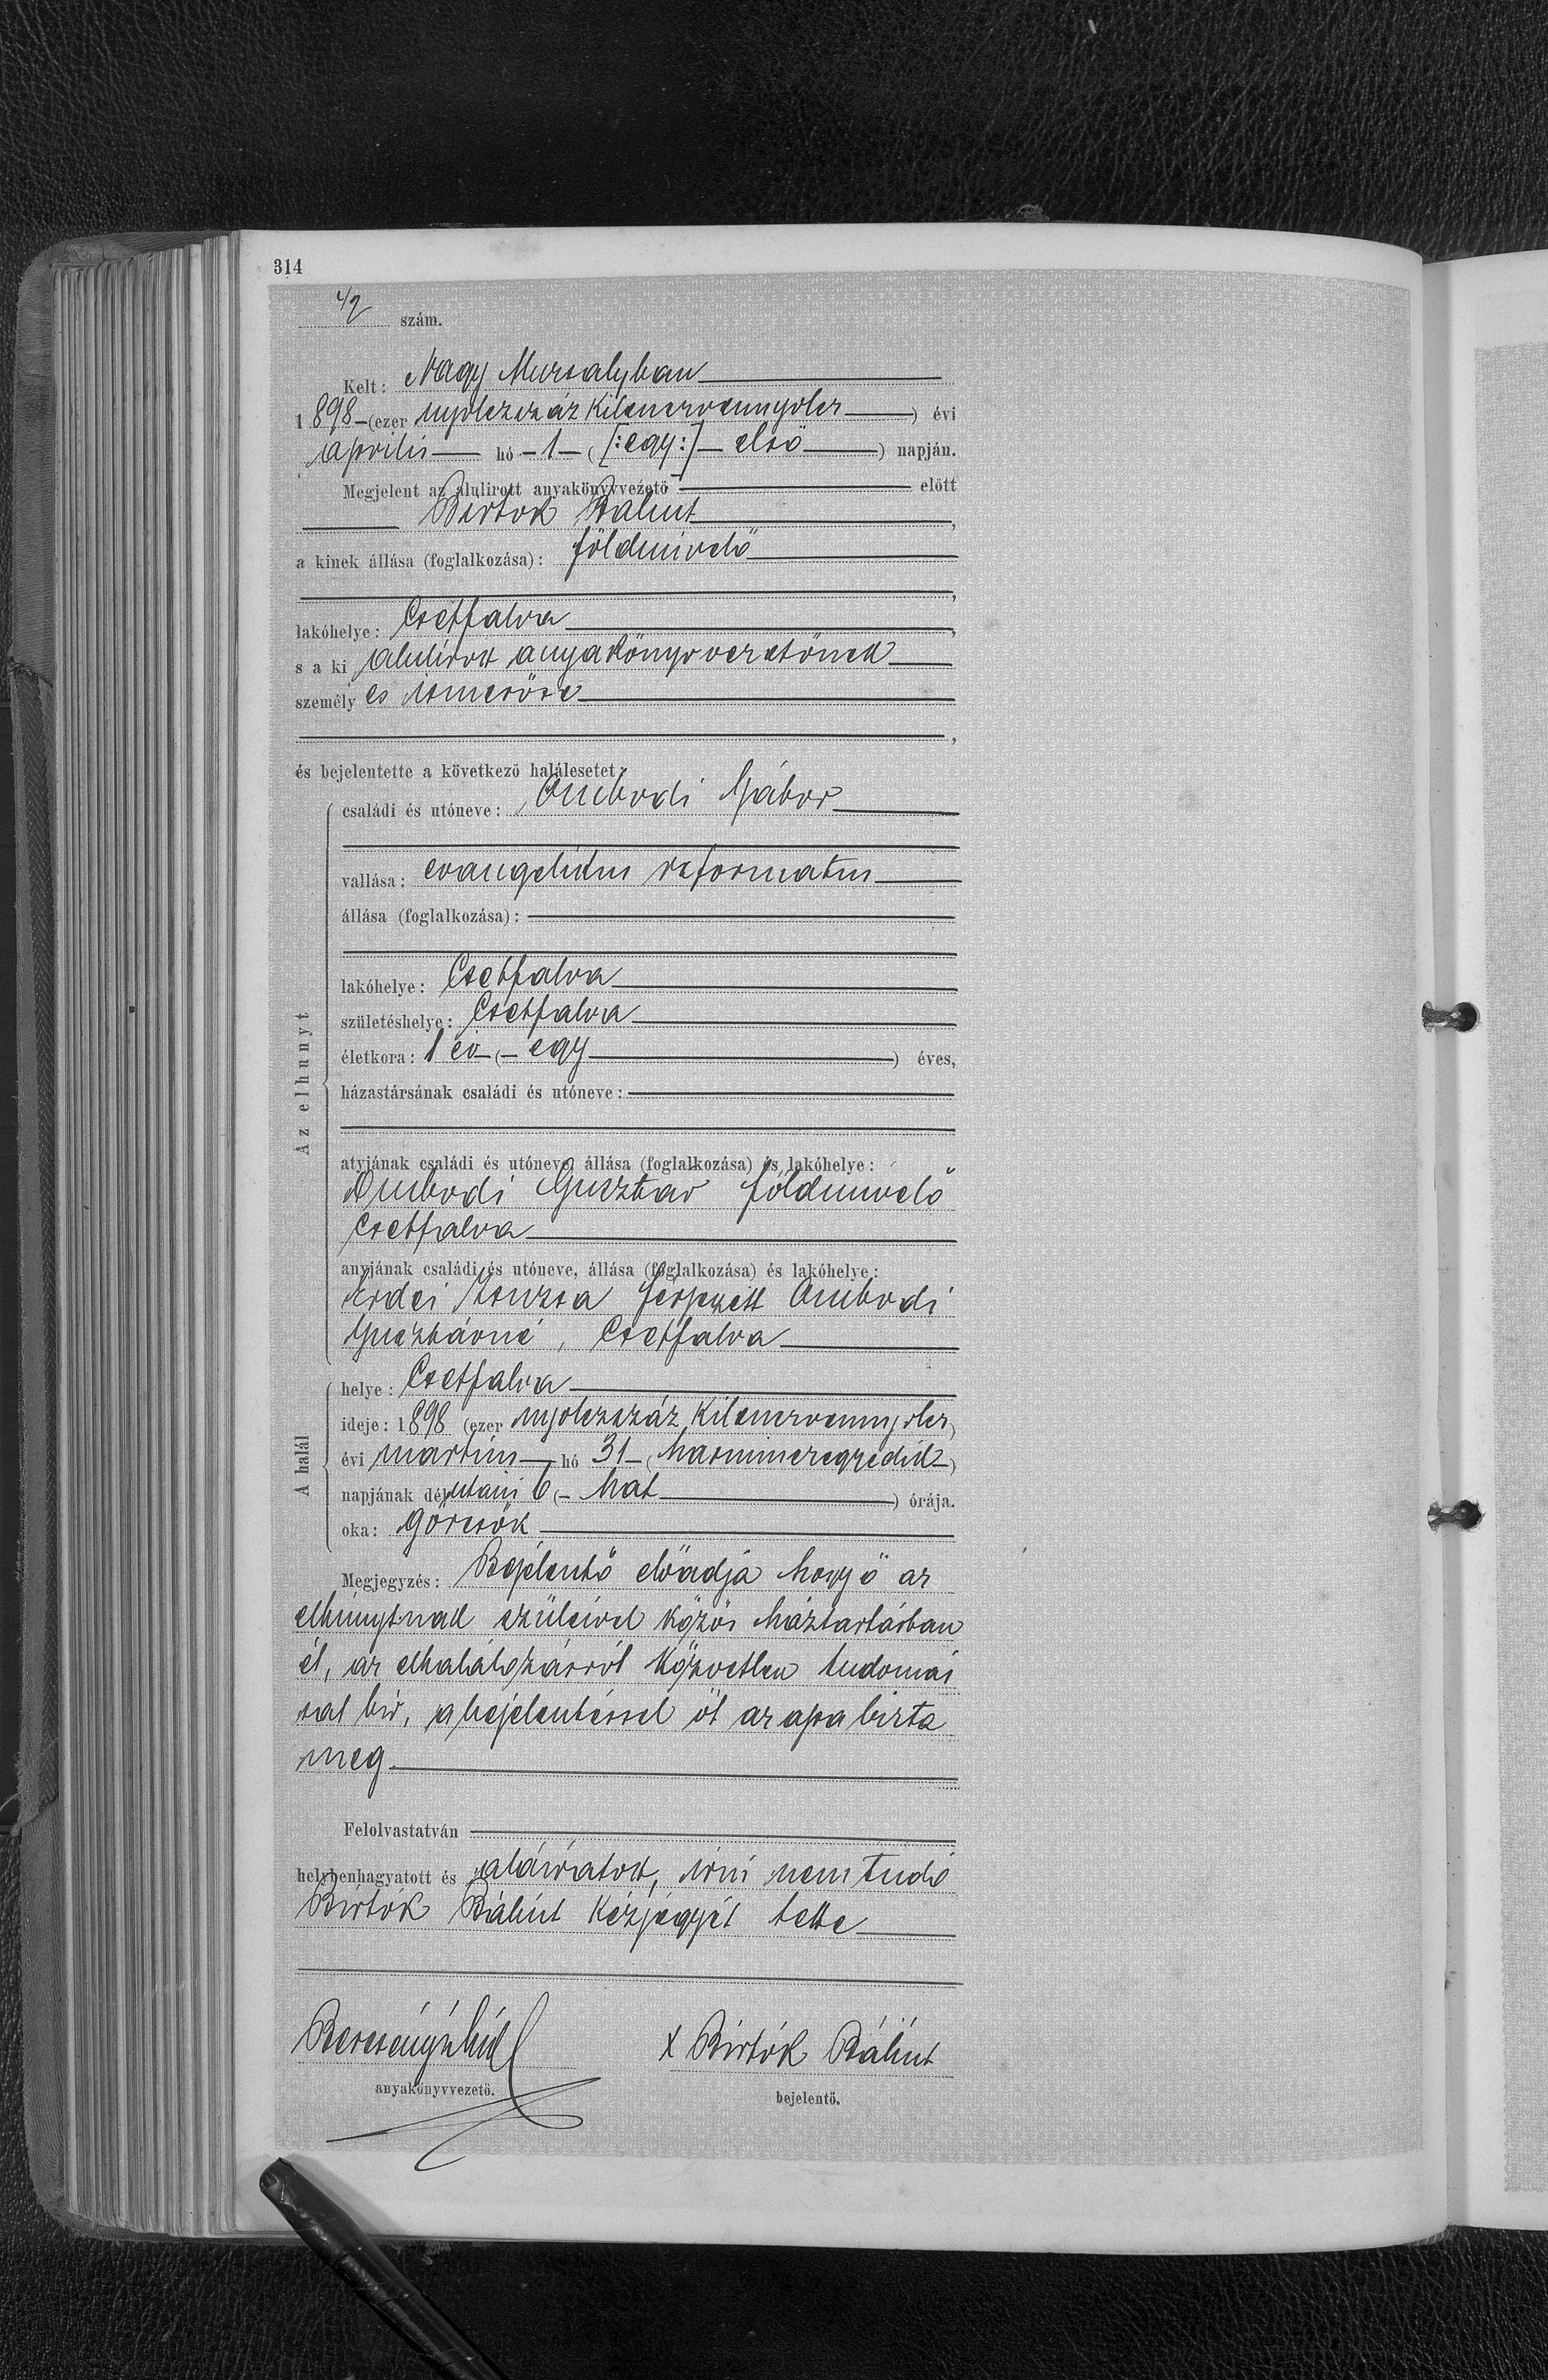 314
42 szám.
Kelt: Nagy Muzsalyban
1898 (ezer nyolczszáz kilenczvennyolcz) évi
április hó 1 ([:egy:] első) napján.
Megjelent az alulirott anyakönyvvezető előtt
Birtok Bálint,
a kinek állása (foglalkozása): földmivelő
,
lakóhelye: Csetfalva,
s a ki alulirott anyakönyvvezetőnek
személyes ismerőse
,
és bejelentette a következő halálesetet:
Az elhunyt
családi és utóneve: Ombodi Gábor
vallása: evangelikus reformatus
állása (foglalkozása):
lakóhelye: Csetfalva
születéshelye: Csetfalva
életkora: 1 év (egy) éves,
házastársának családi és utóneve:
atyjának családi és utóneve, állása (foglalkozása) és lakóhelye:
Ombodi Gusztav földmivelő
Csetfalva
anyjának családi és utóneve, állása (foglalkozása) és lakóhelye:
Erdei Zsuzsa férjezett Ombodi
Gusztávné, Csetfalva
A halál
helye: Csetfalva
ideje: 1898 (ezer nyolczszáz kilenczvennyolcz)
évi martius hó 31 (harminczegyedik)
napjának délutáni 6 (hat) órája.
oka: görcsök
Megjegyzés: Bejelentő előadja hogy ő az
elhúnytnak szüleivel közös háztartásban
él, az elhalálozásról közvetlen tudomás
sal bir, a bejelentéssel öt az apa bizta
meg
Felolvastatván
helybenhagyatott és aláiratott, irni nem tudó
Birtók Bálint kézjegyét tette
anyakönyvvezető.
x Birtók Bálint
bejelentő.